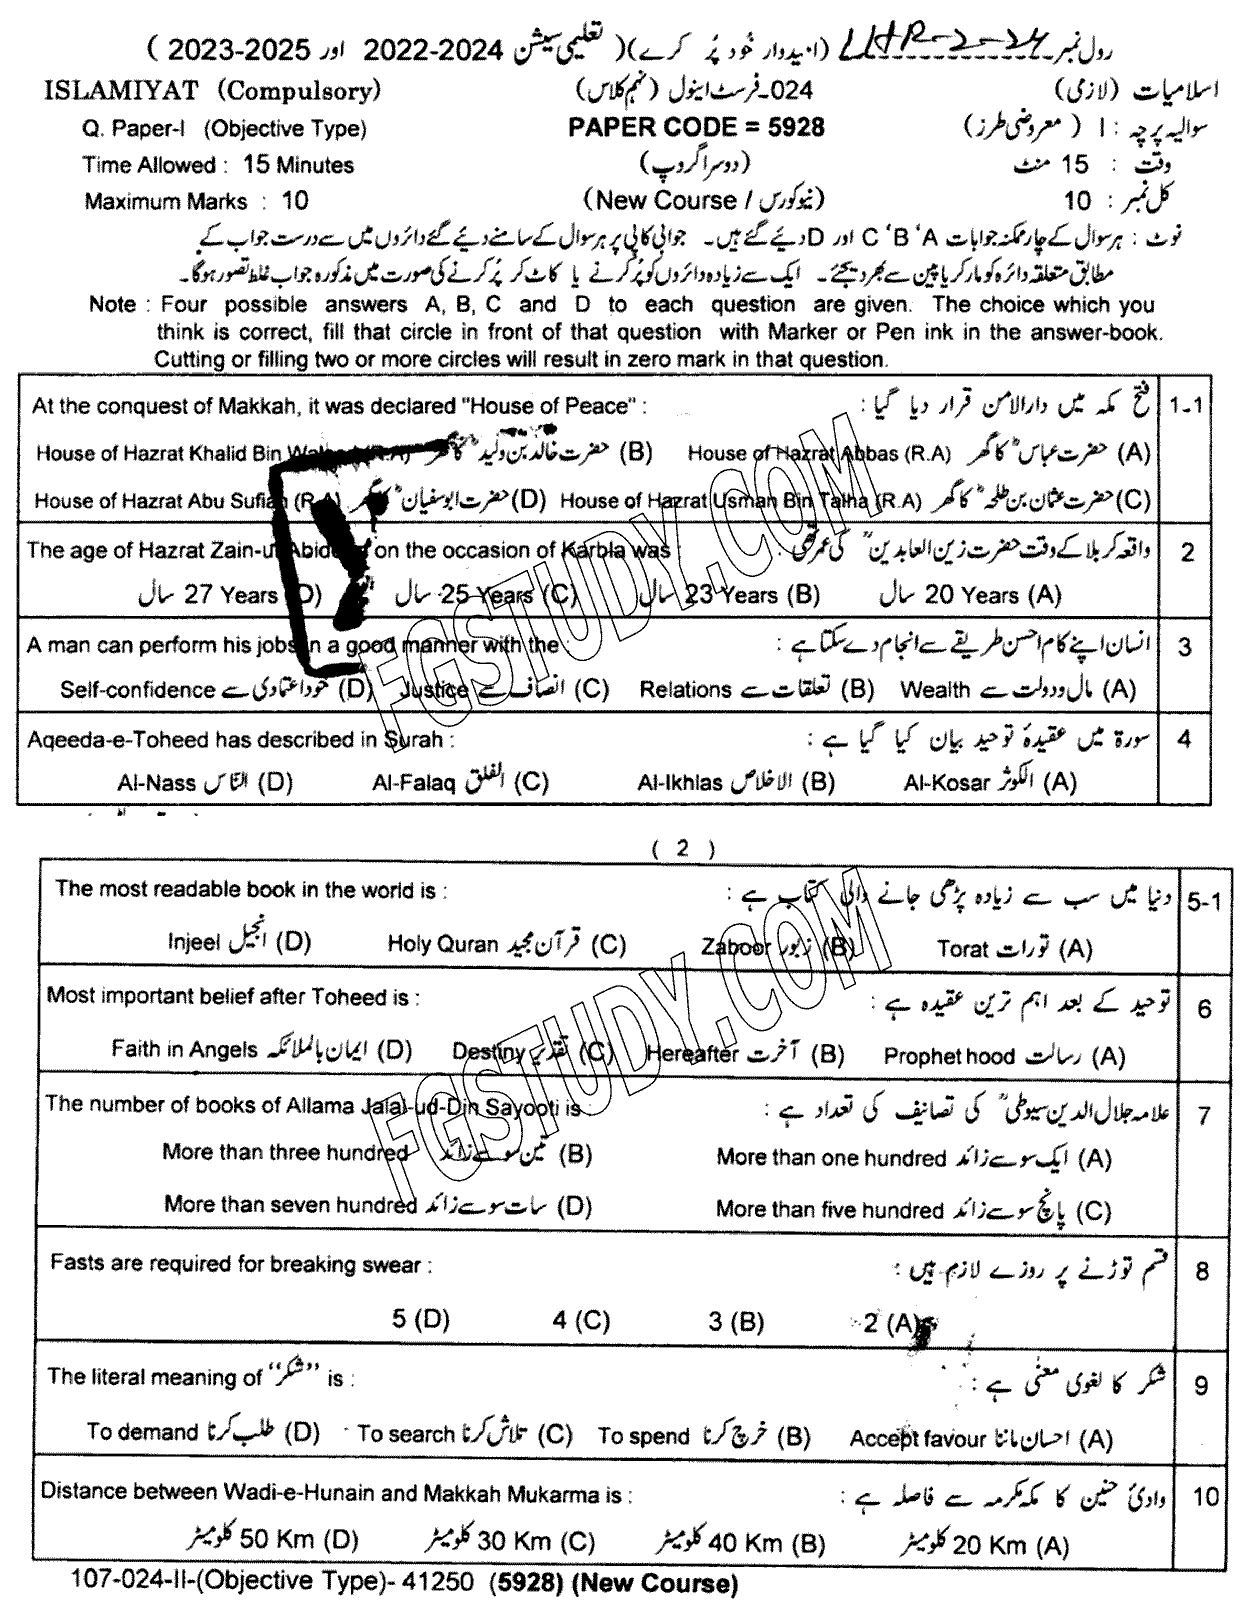 رول نمبر LHR-2-24 (امیدوار خود پُر کرے) ( تعلیمی سیشن 2024-2022 اور 2025-2023 )
ISLAMIYAT (Compulsory) 024-فرسٹ اینول (نہم کلاس) اسلامیات (لازمی)
Q. Paper-I (Objective Type) PAPER CODE = 5928 سوالیہ پرچہ : I ( معروضی طرز)
Time Allowed : 15 Minutes (دوسرا گروپ) وقت : 15 منٹ
Maximum Marks : 10 (New Course / نیو کورس) کل نمبر : 10
نوٹ : ہر سوال کے چار ممکنہ جوابات A ‘B ‘C اور D دئیے گئے ہیں۔ جوابی کاپی پر ہر سوال کے سامنے دئیے گئے دائروں میں سے درست جواب کے
مطابق متعلقہ دائرہ کو مارکر یا پین سے بھر دیجئے۔ ایک سے زیادہ دائروں کو پُر کرنے یا کاٹ کر پُر کرنے کی صورت میں مذکورہ جواب غلط تصور ہو گا۔
Note : Four possible answers A, B, C and D to each question are given. The choice which you
think is correct, fill that circle in front of that question with Marker or Pen ink in the answer-book.
Cutting or filling two or more circles will result in zero mark in that question.
At the conquest of Makkah, it was declared "House of Peace" : فتح مکہ میں دارالامن قرار دیا گیا : 1-1
House of Hazrat Khalid Bin (R.A) حضرت خالد بن ولیدؓ کا گھر (B) House of Hazrat Abbas (R.A) حضرت عباسؓ کا گھر (A)
House of Hazrat Abu Sufian (R.A) حضرت ابوسفیانؓ کا گھر (D) House of Hazrat Usman Bin Talha (R.A) حضرت عثمان بن طلحہؓ کا گھر (C)
The age of Hazrat on the occasion of Karbla was : واقعہ کربلا کے وقت حضرت زین العابدینؒ کی عمر تھی : 2
27 Years سال (D) 25 Years سال (C) 23 Years سال (B) 20 Years سال (A)
A man can perform his jobs in a good manner with the : انسان اپنے کام احسن طریقے سے انجام دے سکتا ہے : 3
Self-confidence خود اعتمادی سے (D) Justice انصاف سے (C) Relations تعلقات سے (B) Wealth مال و دولت سے (A)
Aqeeda-e-Toheed has described in Surah : سورۃ میں عقیدۂ توحید بیان کیا گیا ہے : 4
Al-Nass النّاس (D) Al-Falaq الفلق (C) Al-Ikhlas الاخلاص (B) Al-Kosar الکوثر (A)
( 2 )
The most readable book in the world is : دنیا میں سب سے زیادہ پڑھی جانے والی کتاب ہے : 5-1
Injeel انجیل (D) Holy Quran قرآن مجید (C) Zaboor زبور (B) Torat تورات (A)
Most important belief after Toheed is : توحید کے بعد اہم ترین عقیدہ ہے : 6
Faith in Angels ایمان بالملائکہ (D) Destiny تقدیر (C) Hereafter آخرت (B) Prophet hood رسالت (A)
The number of books of Allama Jalal-ud-Din Sayooti is : علامہ جلال الدین سیوطیؒ کی تصانیف کی تعداد ہے : 7
More than three hundred تین سو سے زائد (B) More than one hundred ایک سو سے زائد (A)
More than seven hundred سات سو سے زائد (D) More than five hundred پانچ سو سے زائد (C)
Fasts are required for breaking swear : قسم توڑنے پر روزے لازم ہیں : 8
5 (D) 4 (C) 3 (B) 2 (A)
The literal meaning of “شکر” is : شکر کا لغوی معنٰی ہے : 9
To demand طلب کرنا (D) To search تلاش کرنا (C) To spend خرچ کرنا (B) Accept favour احسان ماننا (A)
Distance between Wadi-e-Hunain and Makkah Mukarma is : وادئ حنین کا مکہ مکرمہ سے فاصلہ ہے : 10
50 Km کلومیٹر (D) 30 Km کلومیٹر (C) 40 Km کلومیٹر (B) 20 Km کلومیٹر (A)
107-024-II-(Objective Type)- 41250 (5928) (New Course)
FGSTUDY.COM
FGSTUDY.COM